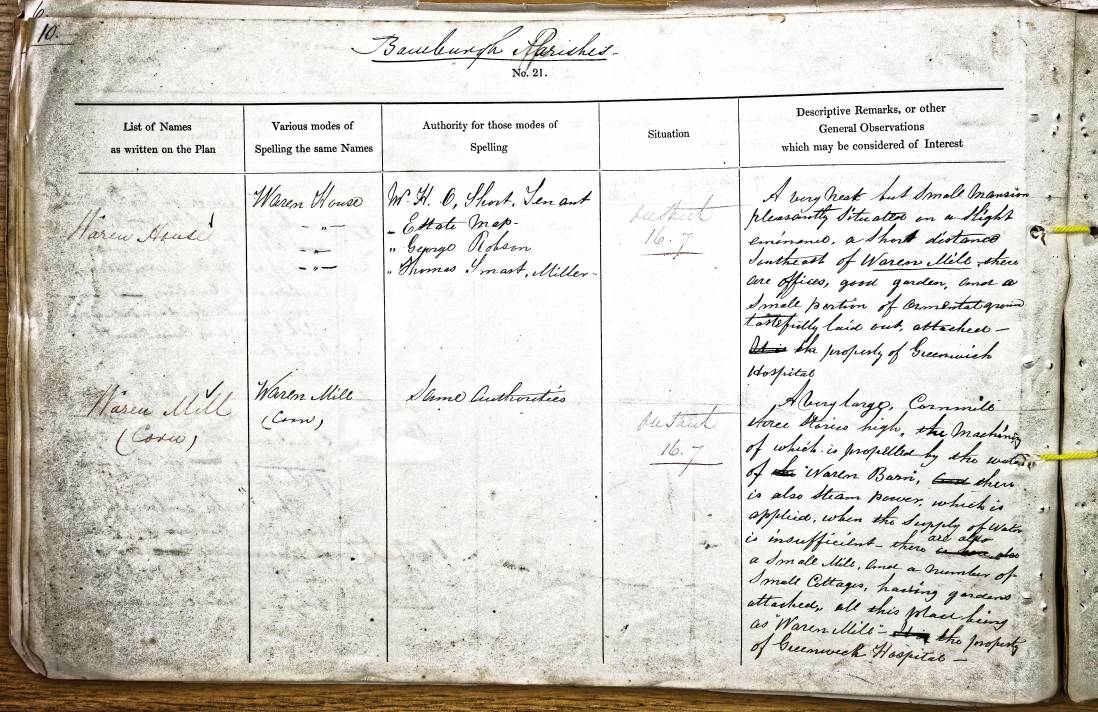 10.
Bamburgh Parishes-
No. 21.
List of Names
as written on the Plan
Various modes of
Spelling the same Names
Authority for those modes of
Spelling
Situation
Descriptive Remarks, or other
General Observations
which may be considered of Interest
Waren House
Waren House
- „ -
- „ -
- „ -
W. H. O, Short, Tenant
„ Estate Map-
„ George Robson
„ Thomas Smart, Miller-
16.7
A very Neat but Small Mansion
pleasantly Situated on a Slight
eminence, a Short distance
Southeast of Waren Mill, there
are offices, good garden, and a
Small portion of Ormental ground
tastefully laid out, attached -
It is the property of Greenwich
Hospital
Waren Mill
(Corn)
Waren Mill
(Corn)
Same Authorities
16.7
A Very large, Cornmill
three Stories high, the Machinery
of which is propelled by the water
of the Waren Burn, there
is also Steam Power, which is
applied, when the Supply of Water
is insufficient - there are also
a Small Mill, and a number of
Small Cottages, having gardens
attached, all this place being
as "Waren Mill" - It is the property
of Greenwich Hospital -